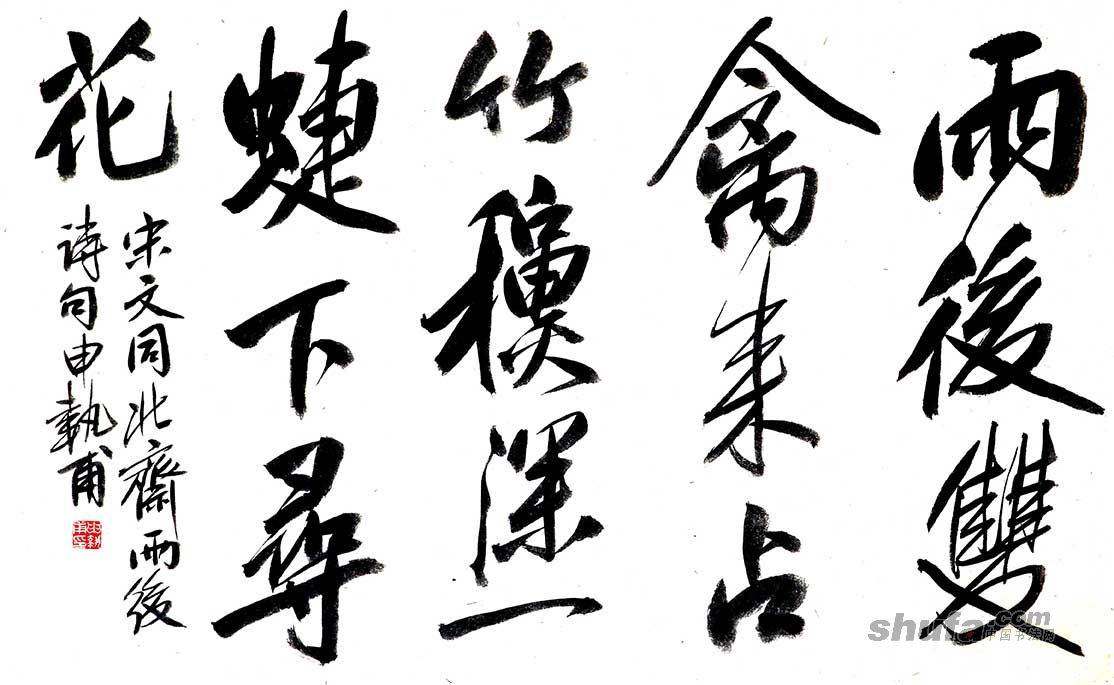 雨後雙
禽来占
竹龝深一
蜨下尋
花
宋文同北齋雨後
詩句申執甫
shufa.com
中国书法网